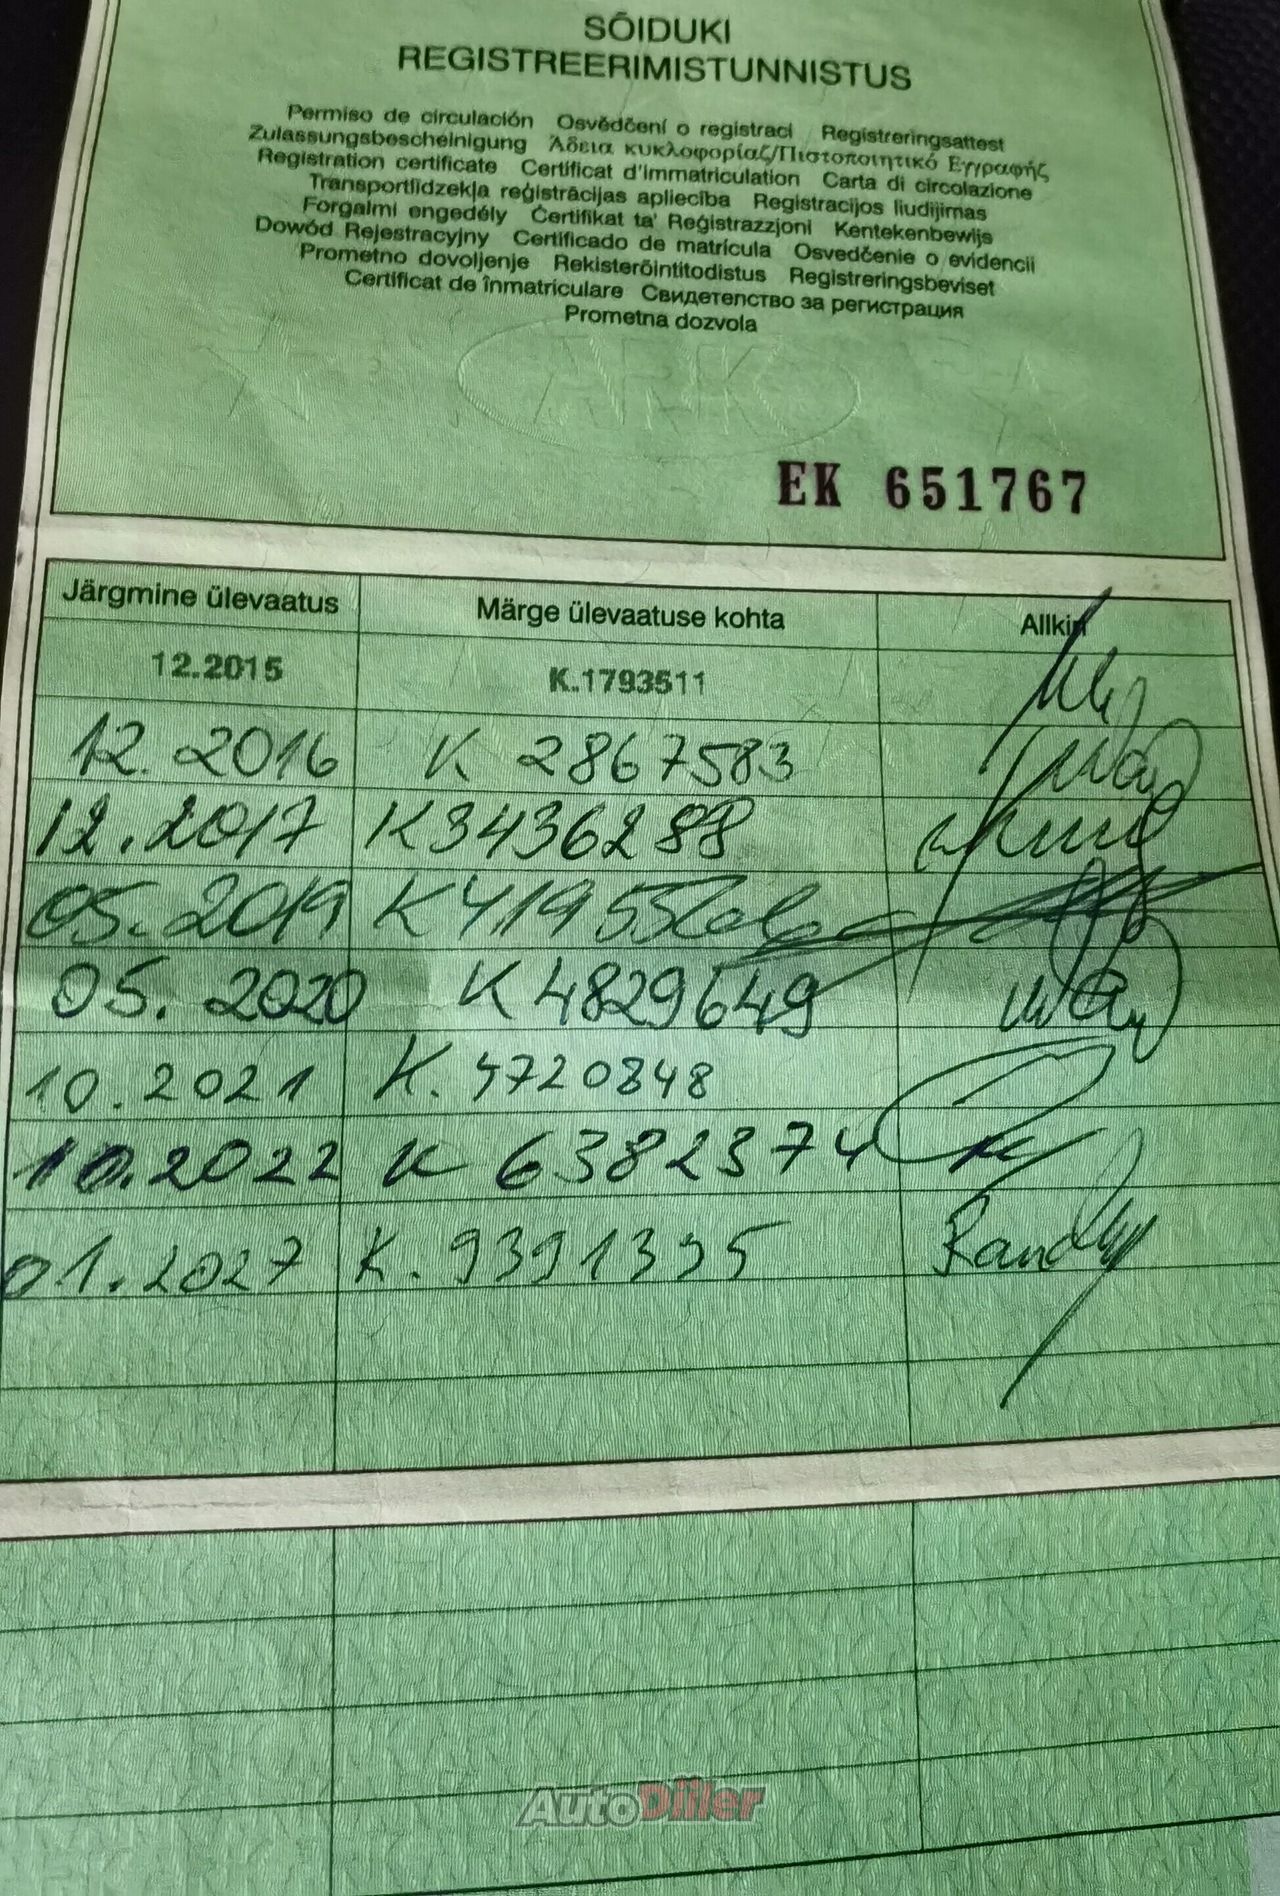 SÕIDUKI
REGISTREERIMISTUNNISTUS
Permiso de circulación Osvědčení o registraci Registreringsattest
Zulassungsbescheinigung Άδεια κυκλοφορίας/Πιστοποιητικό Εγγραφής
Registration certificate Certificat d'immatriculation Carta di circolazione
Transportlīdzekļa reģistrācijas apliecība Registracijos liudijimas
Forgalmi engedély Ċertifikat ta' Reġistrazzjoni Kentekenbewijs
Dowód Rejestracyjny Certificado de matrícula Osvedčenie o evidencii
Prometno dovoljenje Rekisteröintitodistus Registreringsbeviset
Certificat de înmatriculare Свидетелство за регистрация
Prometna dozvola
ARK
EK 651767
Järgmine ülevaatus Märge ülevaatuse kohta Allkiri
12.2015 K.1793511
12.2016 K 2867583
12.2017 K3436288
05.2019
05.2020 K4829649
10.2021 K.4720848
10.2022 K 6382374
01.2027 K.9391395
AutoDiiler